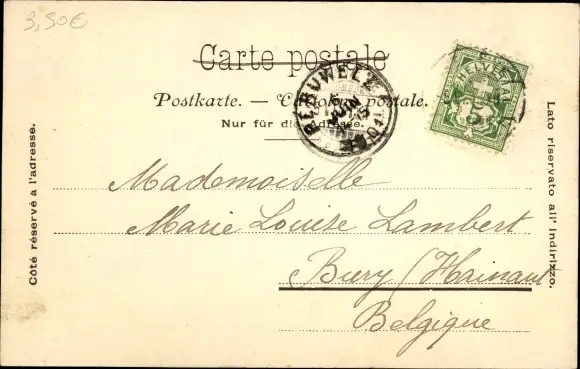 3,50€
Carte postale
Postkarte. — Cartolina postale.
Nur für die Adresse.
PERUWELZ
JUIN
1904
HELVETIA
5
Côté réservé à l'adresse.
Lato riservato all' indirizzo.
Mademoiselle
Marie Louise Lambert
Bury (Hainaut
Belgique